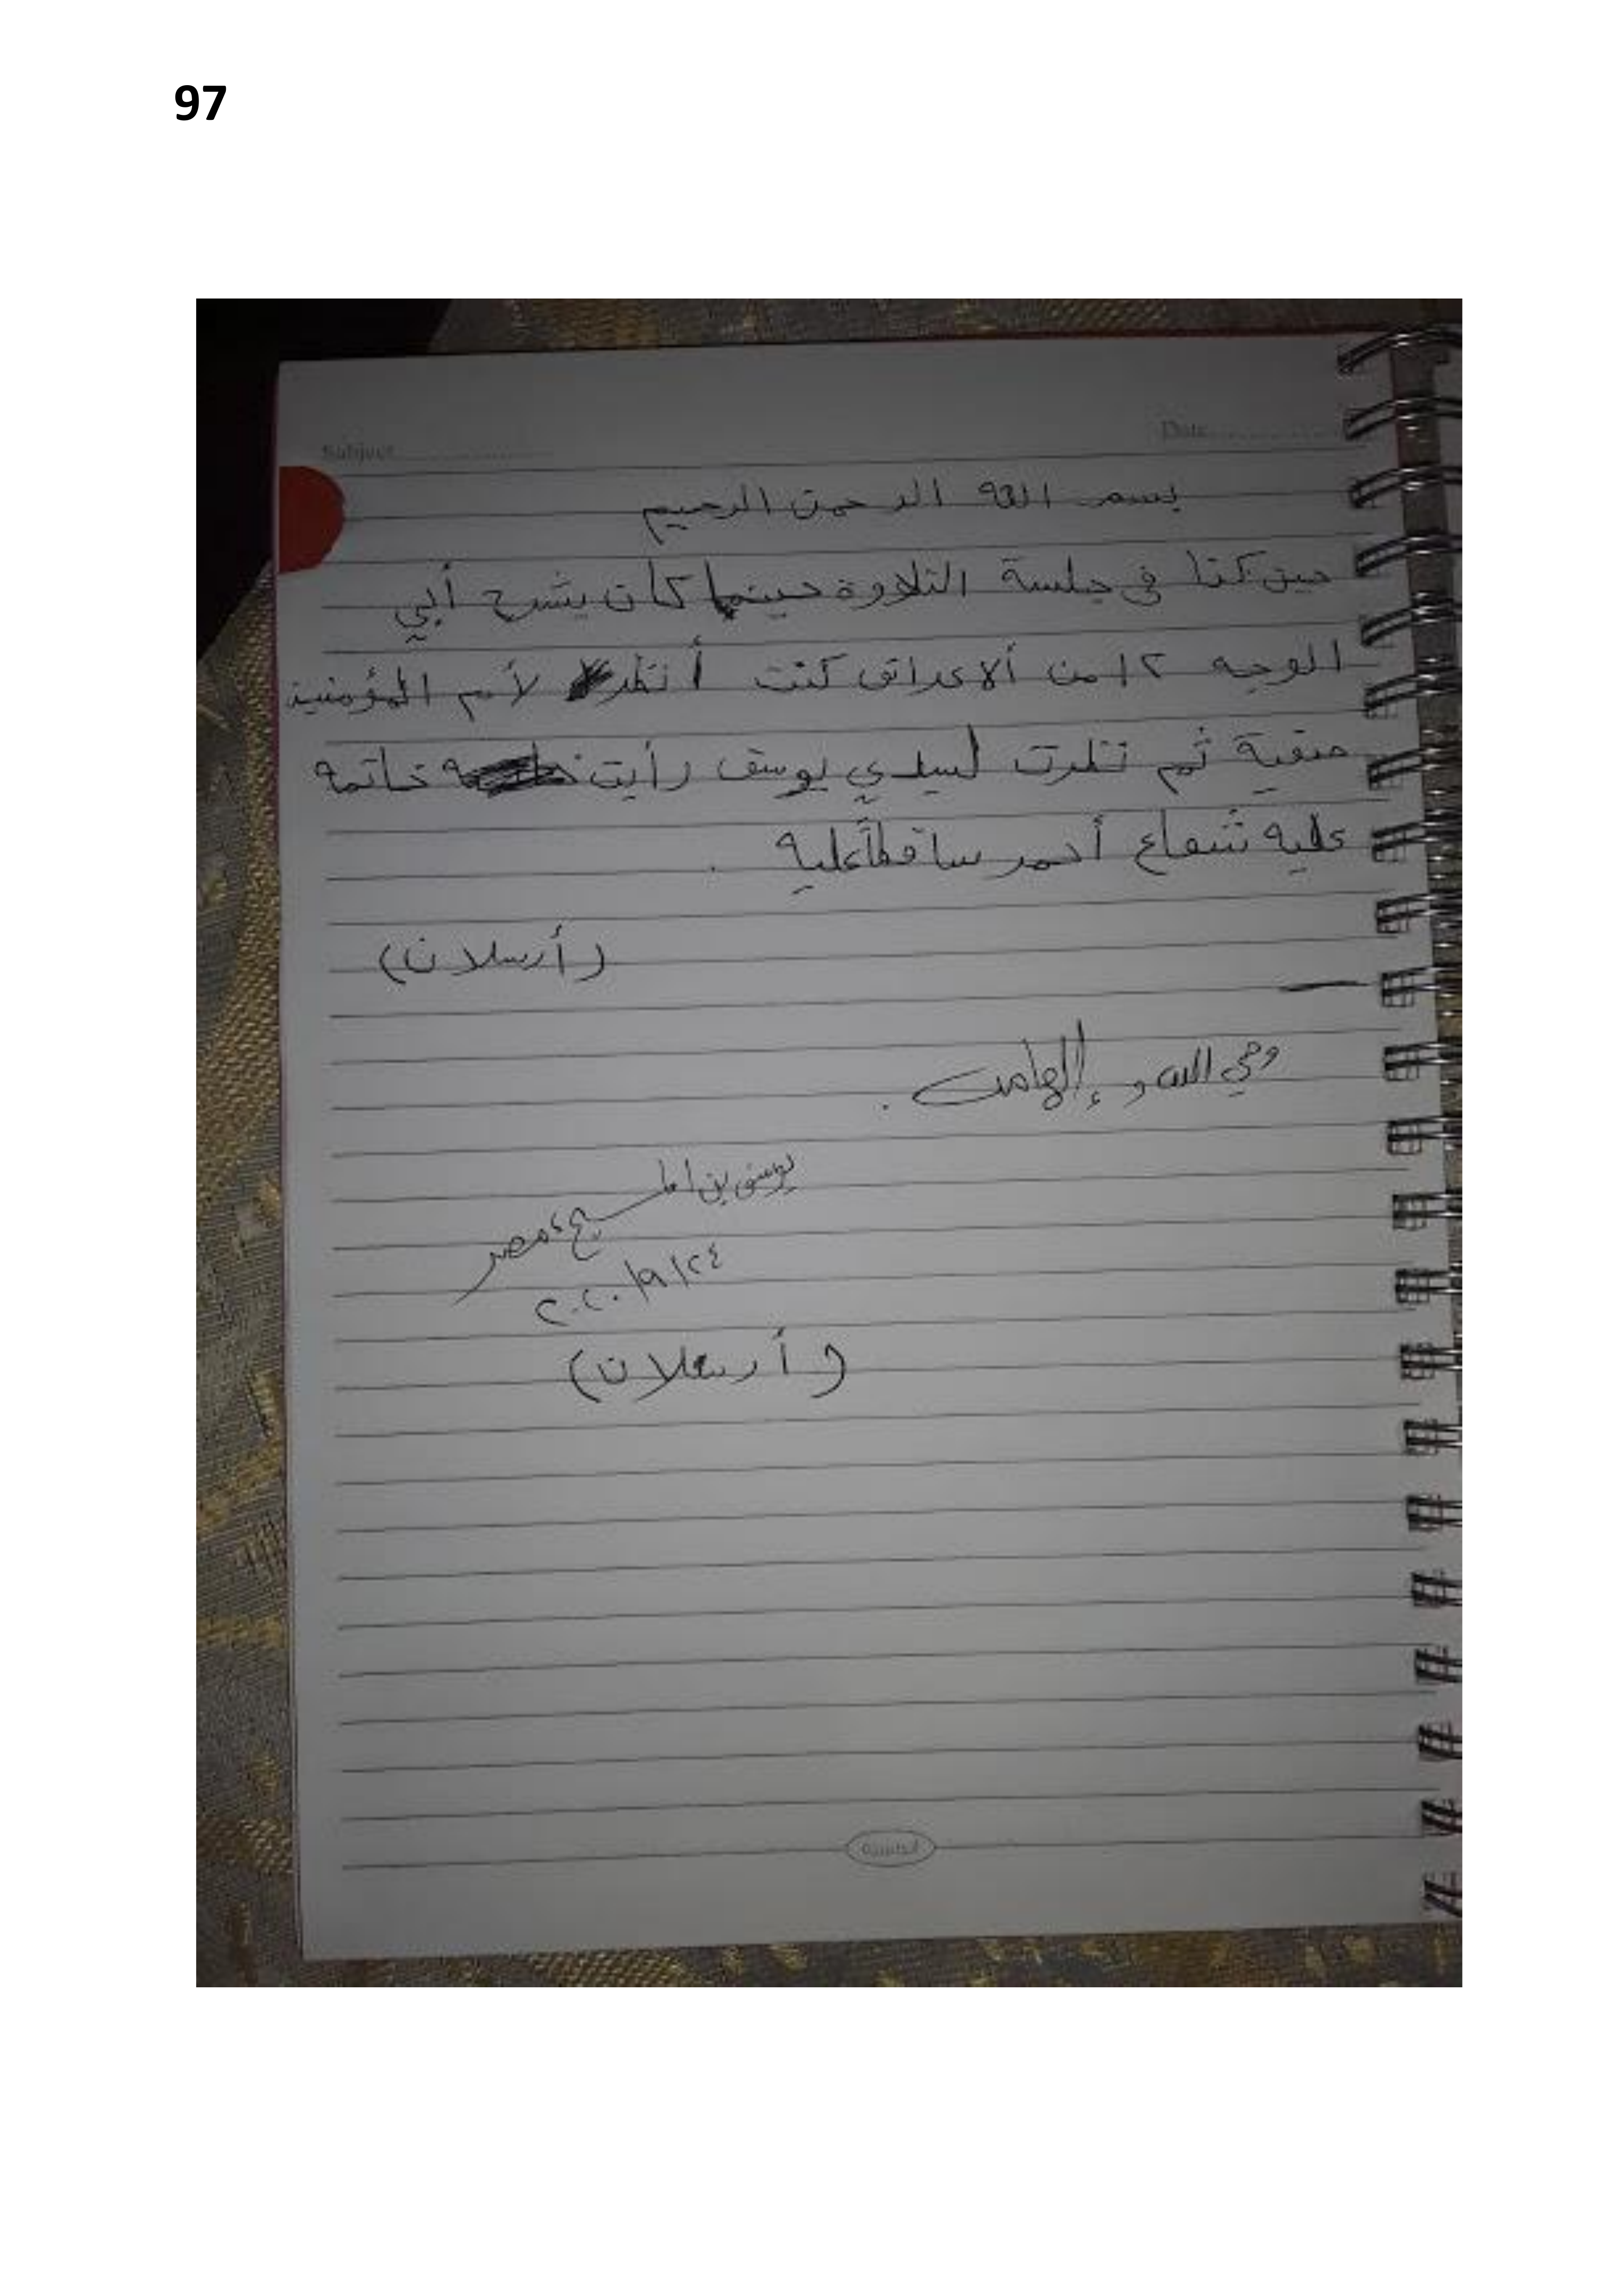 97
Subject
Date
بسم الله الرحمن الرحيم
حين كنا في جلسة التلاوة حينما كان يشرح أبي
الوجه ١٢ من ألاعراف كنت أنظر لأم المؤمنين
صفية ثم نظرت لسيدي يوسف رأيت خاتمه
عليه شعاع أحمر ساقطاً عليه .
(أرسلان)
وحي الله و إلهامه .
يوسف بن المسيح ، مصر
٢٤/٩/٢٠٢٠
(أرسلان)